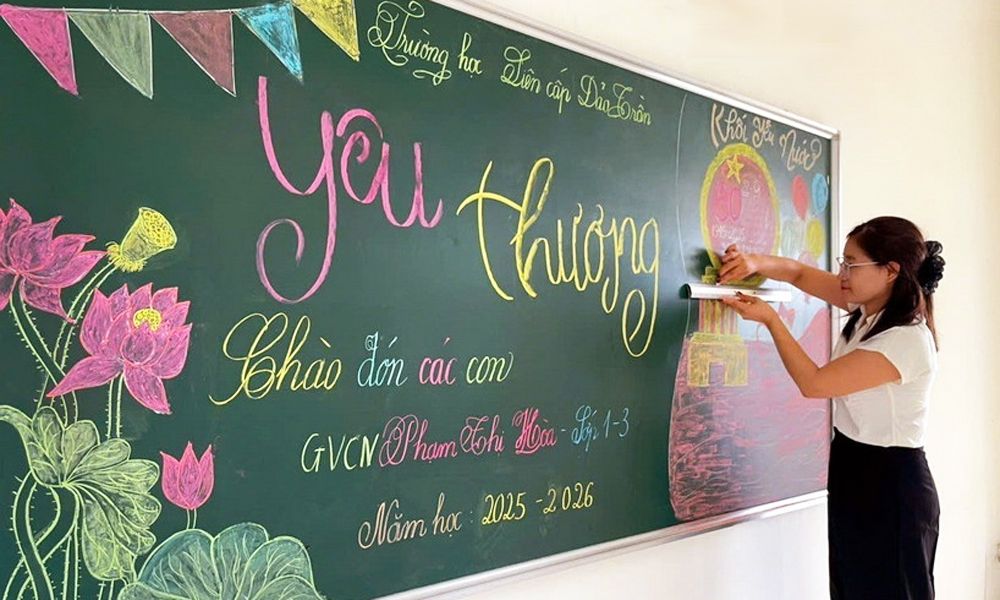 Trường học Liên cấp Dảo Trần
Yêu thương
Khối Yêu Nước
80
Chào đón các con
GVCN Phạm Thị Hòa - Lớp 1-3
Năm học : 2025 - 2026